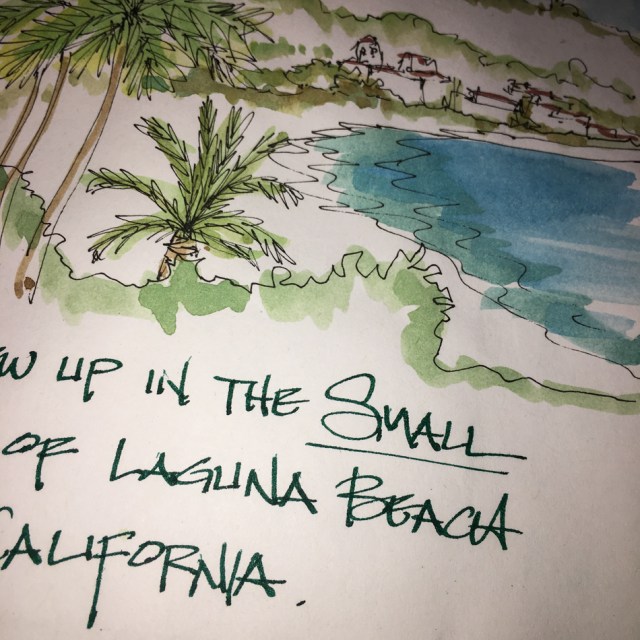 W UP IN THE SMALL
OF LAGUNA BEACH
CALIFORNIA.